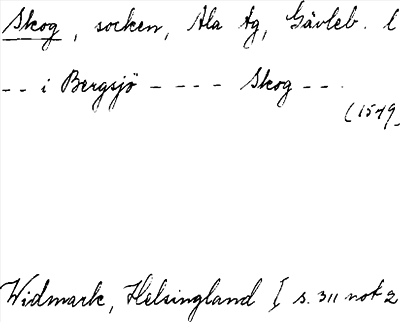 Skog, socken, Ala tg, Gävleb. l
-- i Bergsjö ---- Skog --.
(1549)
Widmark, Helsingland I s. 311 not 2